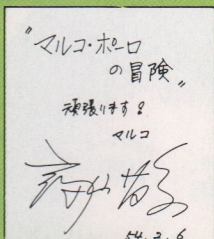 "マルコ・ポーロ
の冒険"
頑張ります!
マルコ
54.3.6